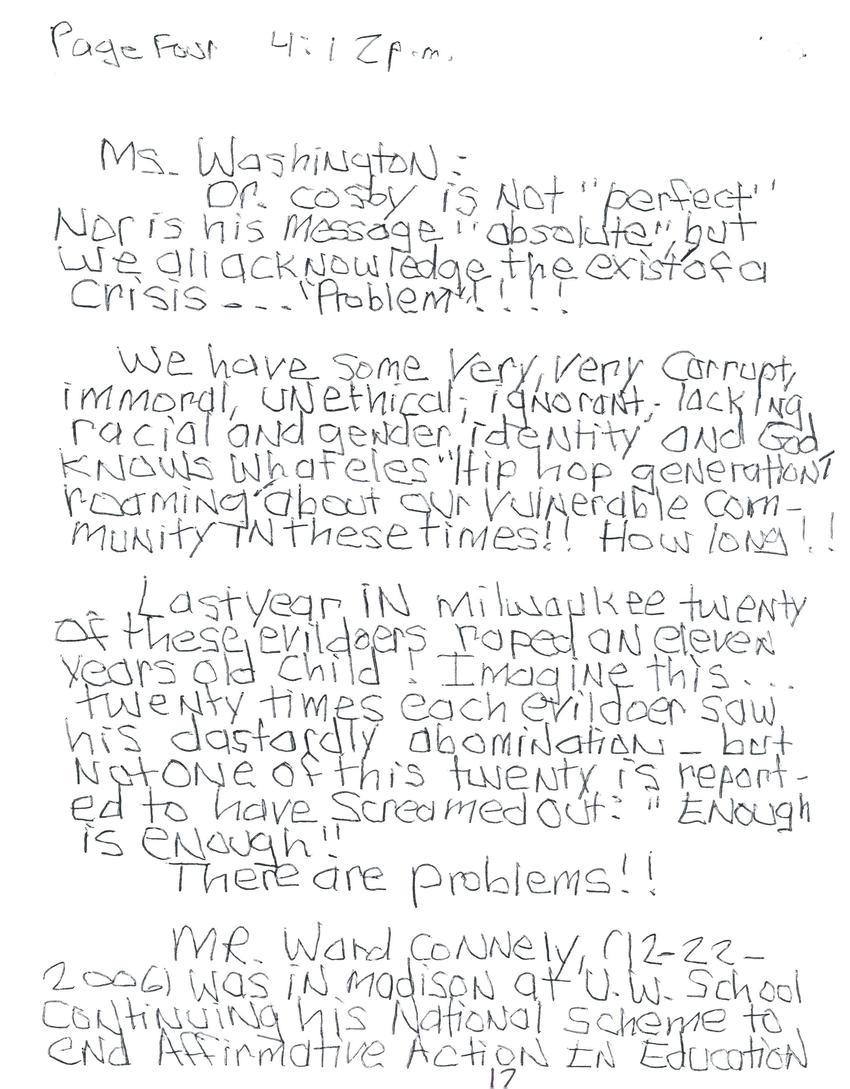 Page Four 4:12 p.m.
Ms. Washington:
Dr. Cosby is Not "perfect"
Nor is his message "absolute", but
we all acknowledge the exist of a
Crisis --- "Problem"!!!!
We have some very, very Corrupt,
immoral, unethical, ignorant, lacking
racial and gender identity and God
knows what eles "Hip hop generation"
roaming about our vulnerable com-
munity IN these times!! How long!!
Last year in Milwaukee twenty
of these evildoers raped an eleven
years old child! Imagine this...
twenty times each evildoer saw
his dastardly abomination - but
Not one of this twenty is report-
ed to have screamed out: "Enough
is enough"!
There are problems!!
MR. Ward Connely, (12-22-
2006) was in Madison at U.W. School
Continuing his National Scheme to
end Affirmative Action IN Education
17